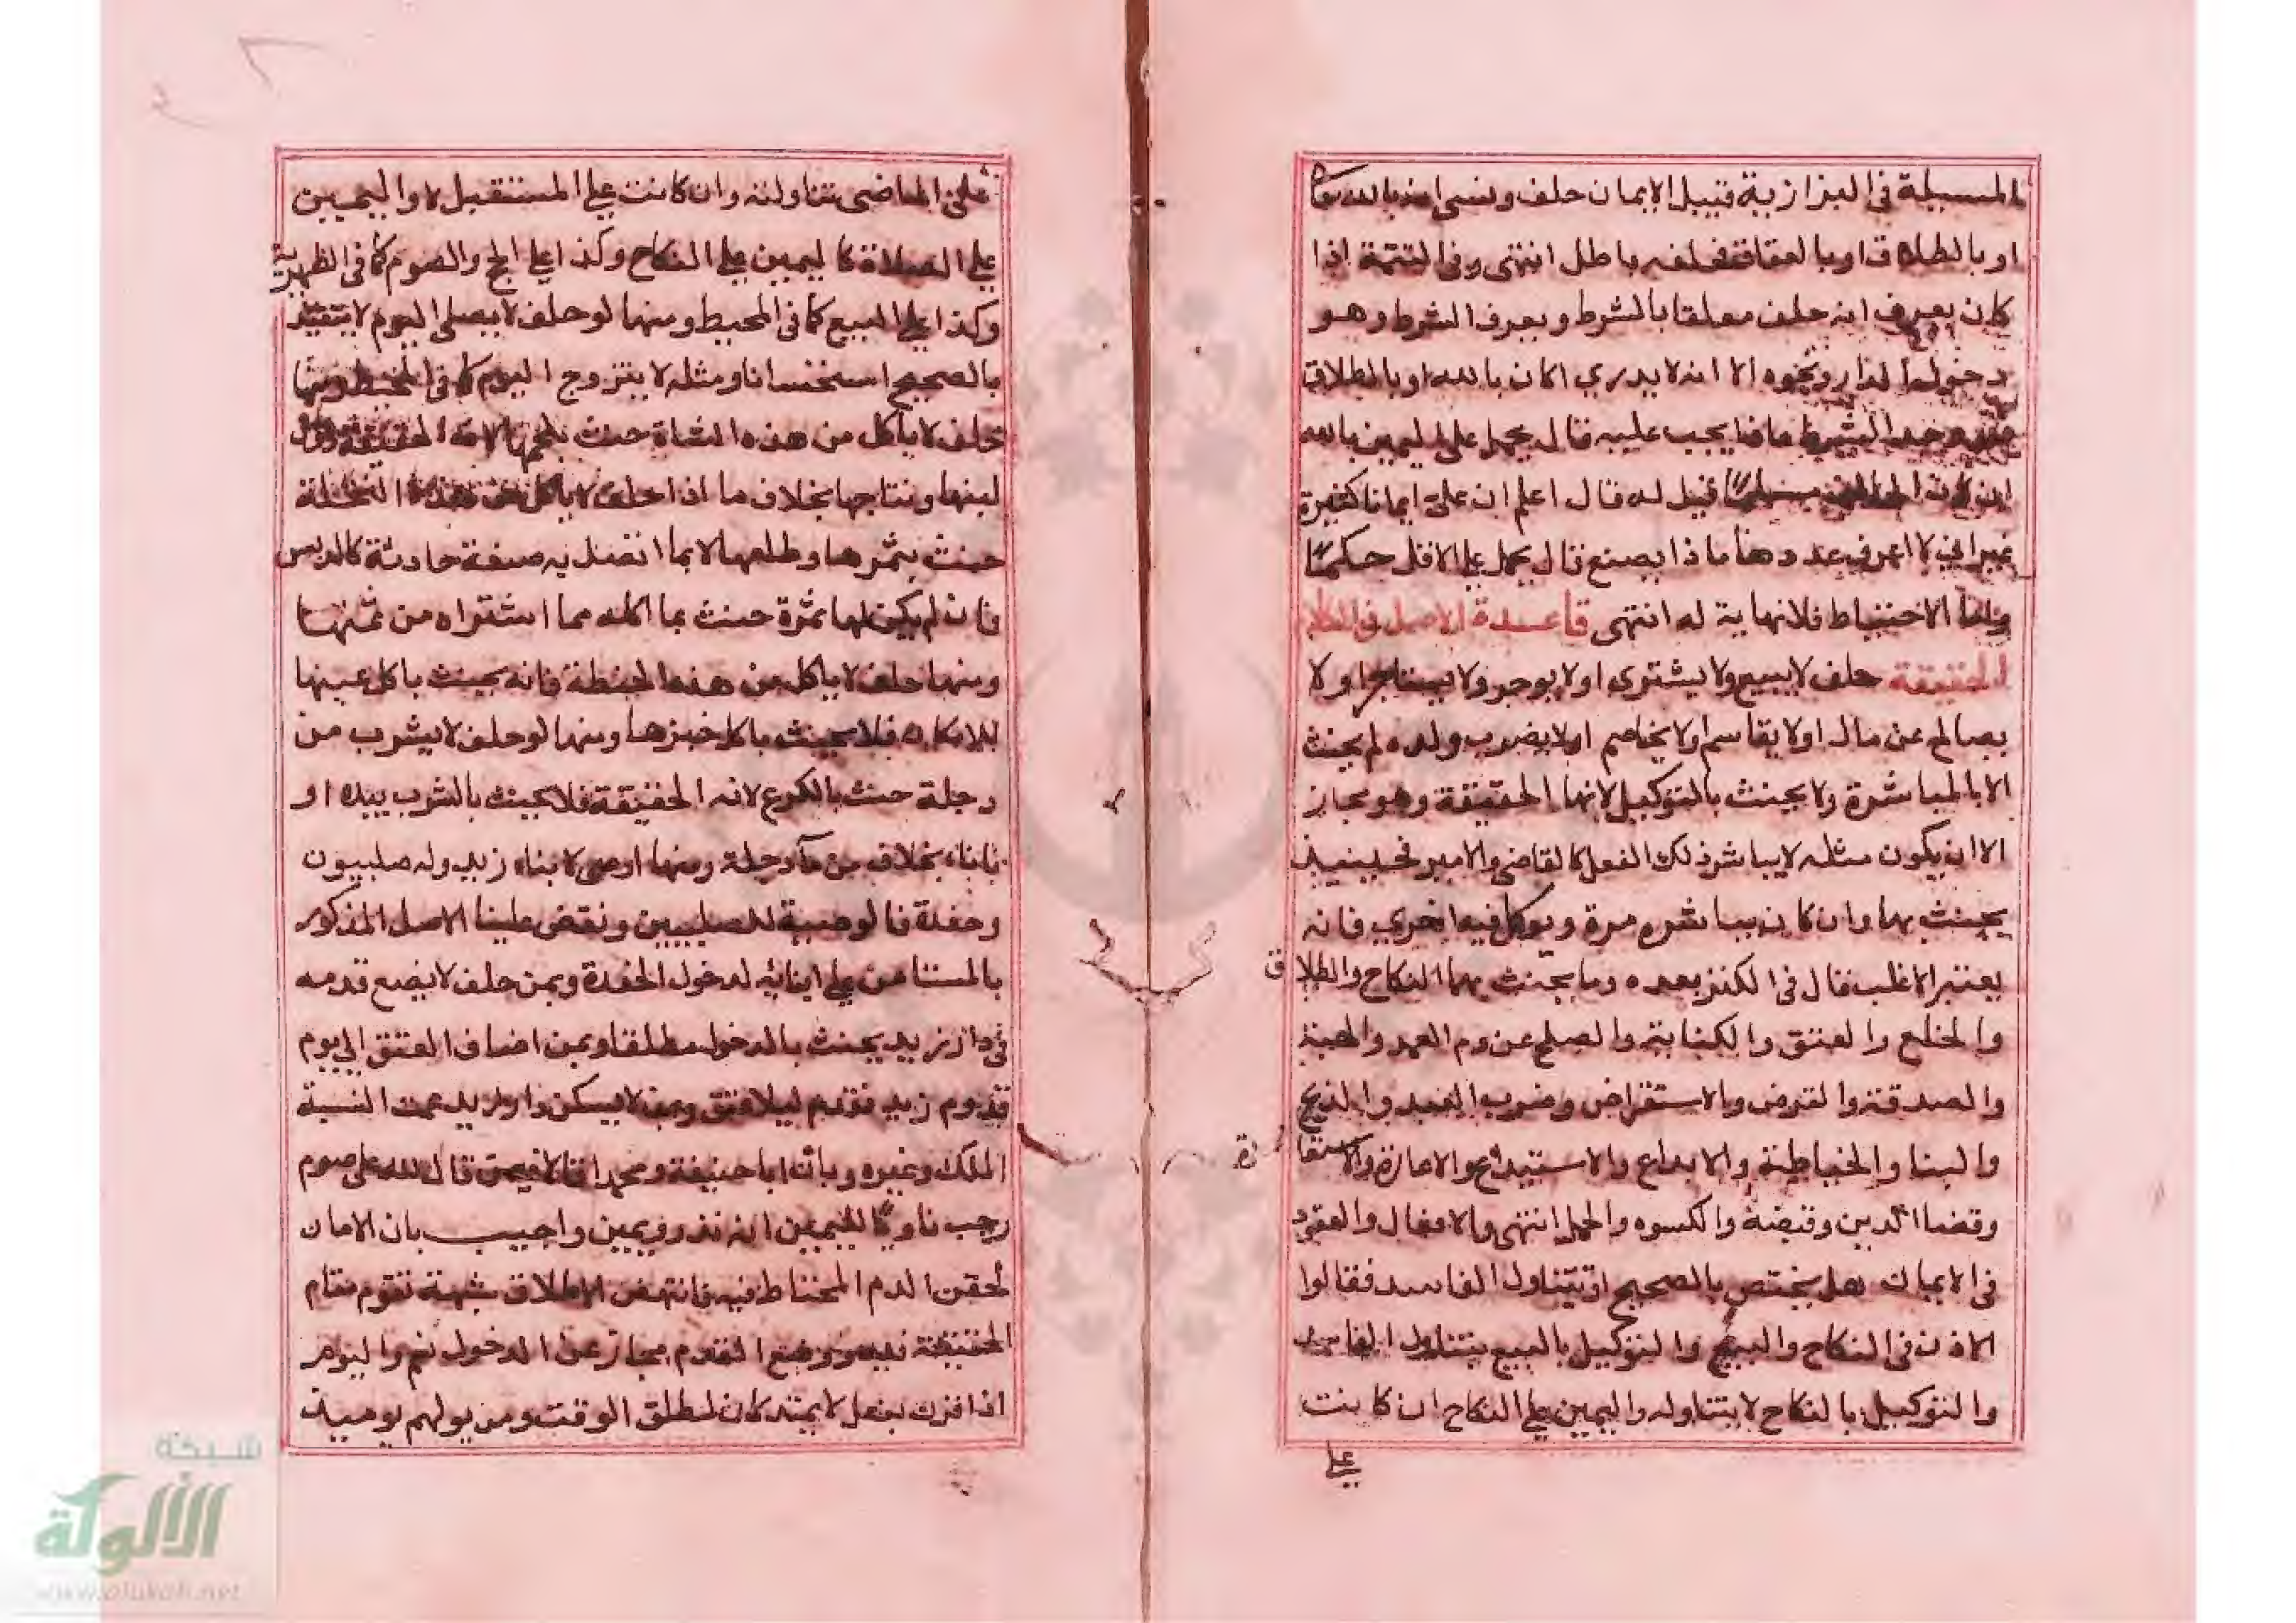 المسيلة في البزازية قبيل الايمان حلف ونسي انه بالله تعا
او بالطلاق او بالعتاق فحلفه باطل انتهى وفي التتمة اذا
كان يعرف انه حلف معلقا بالشرط ويعرف الشرط وهو
دخول الدار ونحوه الا انه لا يدري اكان بالله او بالطلاق
الشرط ماذا يجب عليه قال يحمل على اليمين بالله
ان كان الحالف مسلما قيل له قال اعلم ان علي ايمانا كثيرة
غير اني لا اعرف عددها ماذا يصنع قال يحمل علي الاقل حكما
واما الاحتياط فلا نهاية له انتهى قاعدة الاصل في الكلام
الحقيقة حلف لا يبيع ولا يشتري او لا يوجر ولا يستاجر او لا
يصالح عن مال او لا يقاسم او لا يخاصم او لا يضرب ولده لم يحنث
الا بالمباشرة ولا يحنث بالتوكيل لانها الحقيقة وهو مجاز
الا ان يكون مثله لا يباشر ذلك الفعل كالقاضي والامير فحينيذ
يحنث بهما وان كان يباشره مرة ويوكل فيه اخري فانه
يعتبر الاغلب قال في الكنز بعده وما يحنث بهما النكاح والطلاق
والخلع والعتق والكتابة والصلح عن دم العمد والهبة
والصدقة والقرض والاستقراض وضرب العبد والذبح
والبنا والخياطة والايداع والاستيداع والاعارة والاستعارة
وقضا الدين وقبضه والكسوه والحمل انتهى والافعال والعقود
في الايمان هل يختص بالصحيح او يتناول الفاسد فقالوا
الاذن في النكاح والبيع والتوكيل بالبيع يتناول الفاسد
والتوكيل بالنكاح لا يتناوله واليمين علي النكاح ان كانت
علي
علي الماضي تتناوله وان كانت علي المستقبل لا واليمين
علي الصلاة كاليمين علي النكاح وكذا علي الحج والصوم كما في الظهيرية
وكذا علي البيع كما في المحيط ومنها لو حلف لا يصلي اليوم لا يتقيد
بالصحيح استحسانا ومثله لا يتزوج اليوم كما في المحيط ومنها
حلف لا ياكل من هذه الشاة حنث بلحمها لانه الحقيقة دون
لبنها ونتاجها بخلاف ما اذا حلف لا ياكل من هذه النخلة
حنث بثمرها وطلعها لا بما اتصل به صنعة حادثة كالدبس
فان لم يكن لها ثمرة حنث بما اكله مما اشتراه من ثمنها
ومنها حلف لا ياكل من هذه الحنطة فانه يحنث باكل عينها
للامكان فلا يحنث باكل خبزها ومنها لو حلف لا يشرب من
دجلة حنث بالكرع لانه الحقيقة فلا يحنث بالشرب بيده او
باناء بخلاف من ماء دجلة ومنها اوصى لابناء زيد وله صلبيون
وحفدة فالوصية للصلبيين ونقض علينا الاصل المذكور
بالمستامن علي ابنائه لدخول الحفدة وبمن حلف لا يضع قدمه
في دار زيد يحنث بالدخول مطلقا وبمن اضاف العتق الي يوم
قدوم زيد فقدم ليلا عتق وبمن لا يسكن دار زيد عمت النسبة
الملك وغيره وبان ابا حنيفة ومحمدا قالا فيمن قال لله علي صوم
رجب ناويا لليمين انه نذر ويمين واجيب بان الامان
لحقن الدم المحتاط فيه فانتهض الاطلاق شبهة تقوم مقام
الحقيقة فيه ووضع القدم مجاز عن الدخول فعم واليوم
اذا قرن بفعل لا يمتد كان لمطلق الوقت ومن يولهم يوميذ
شبكة
الألوكة
www.alukah.net